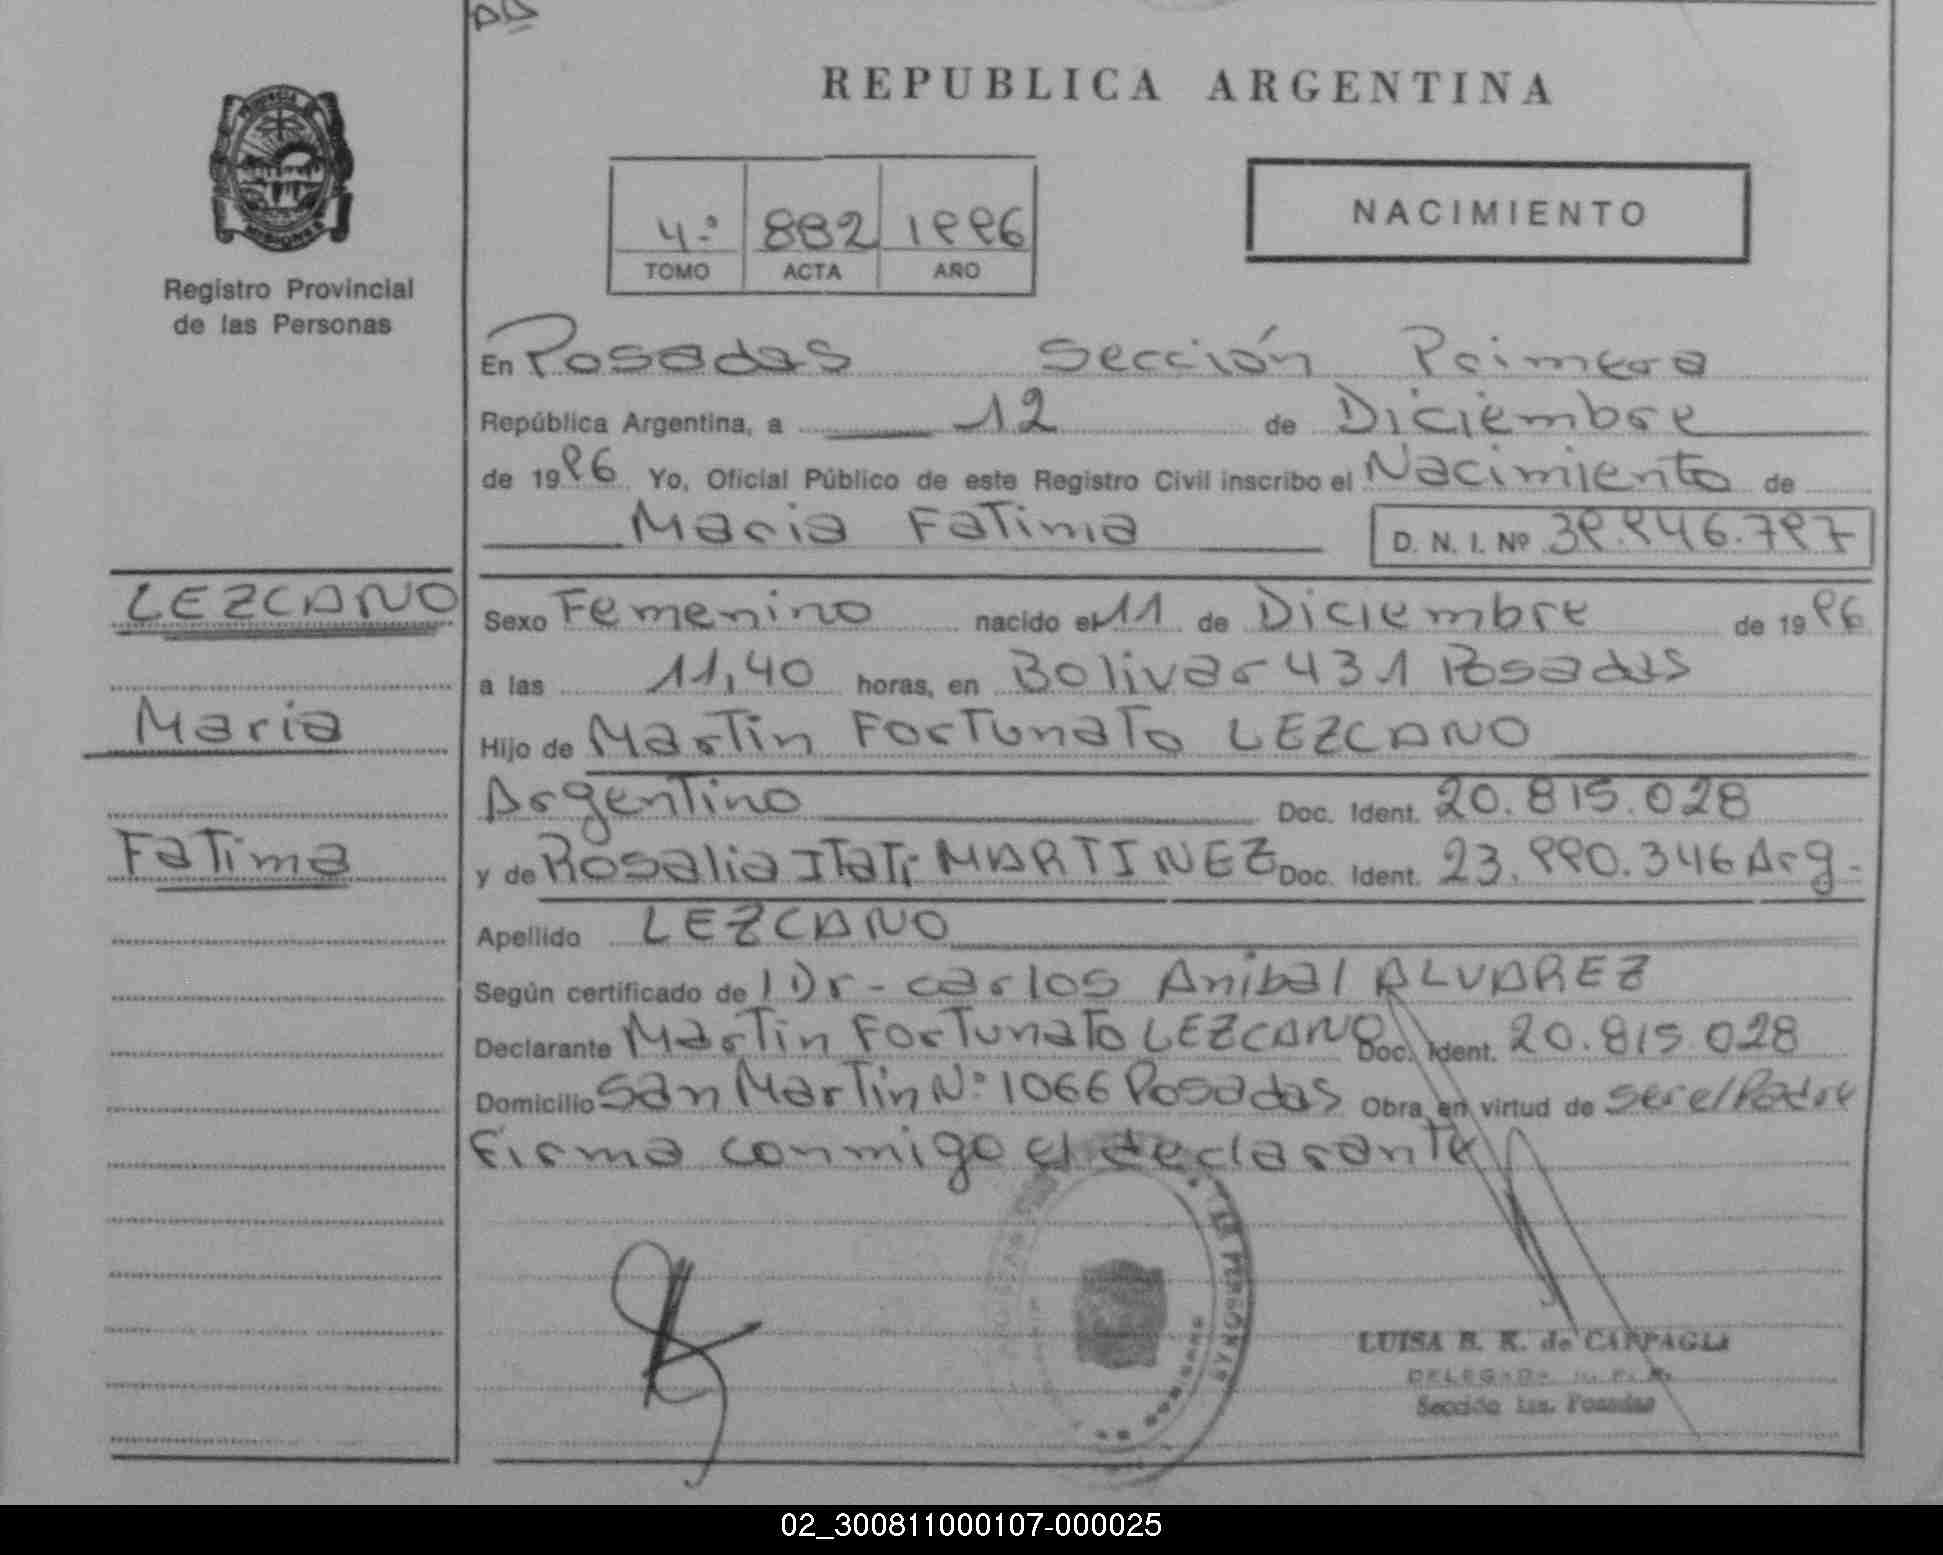 REPUBLICA ARGENTINA
PROVINCIA DE
MISIONES
Registro Provincial
de las Personas
4º 882 1996
TOMO ACTA AÑO
NACIMIENTO
En Posadas Sección Primera
República Argentina, a 12 de Diciembre
de 1996 Yo, Oficial Público de este Registro Civil inscribo el Nacimiento de
Maria Fatima D. N. I. Nº 39.946.797
LEZCANO
Maria
Fatima
Sexo Femenino nacido el 11 de Diciembre de 1996
a las 11,40 horas, en Bolivar 431 Posadas
Hijo de Martin Fortunato LEZCANO
Argentino Doc. Ident. 20.815.028
y de Rosalia Itati MARTINEZ Doc. Ident. 23.990.346 Arg.
Apellido LEZCANO
Según certificado de l Dr-carlos Anibal ALVAREZ
Declarante Martin Fortunato LEZCANO Doc. Ident. 20.815.028
Domicilio San Martin Nº 1066 Posadas Obra en virtud de ser el Padre
Firma conmigo el declarante
LAS PERSONAS
MISIONES
LUISA B. K. de CAPPAGLI
DELEGADA R. P. P.
Sección 1ra. Posadas
02_300811000107-000025